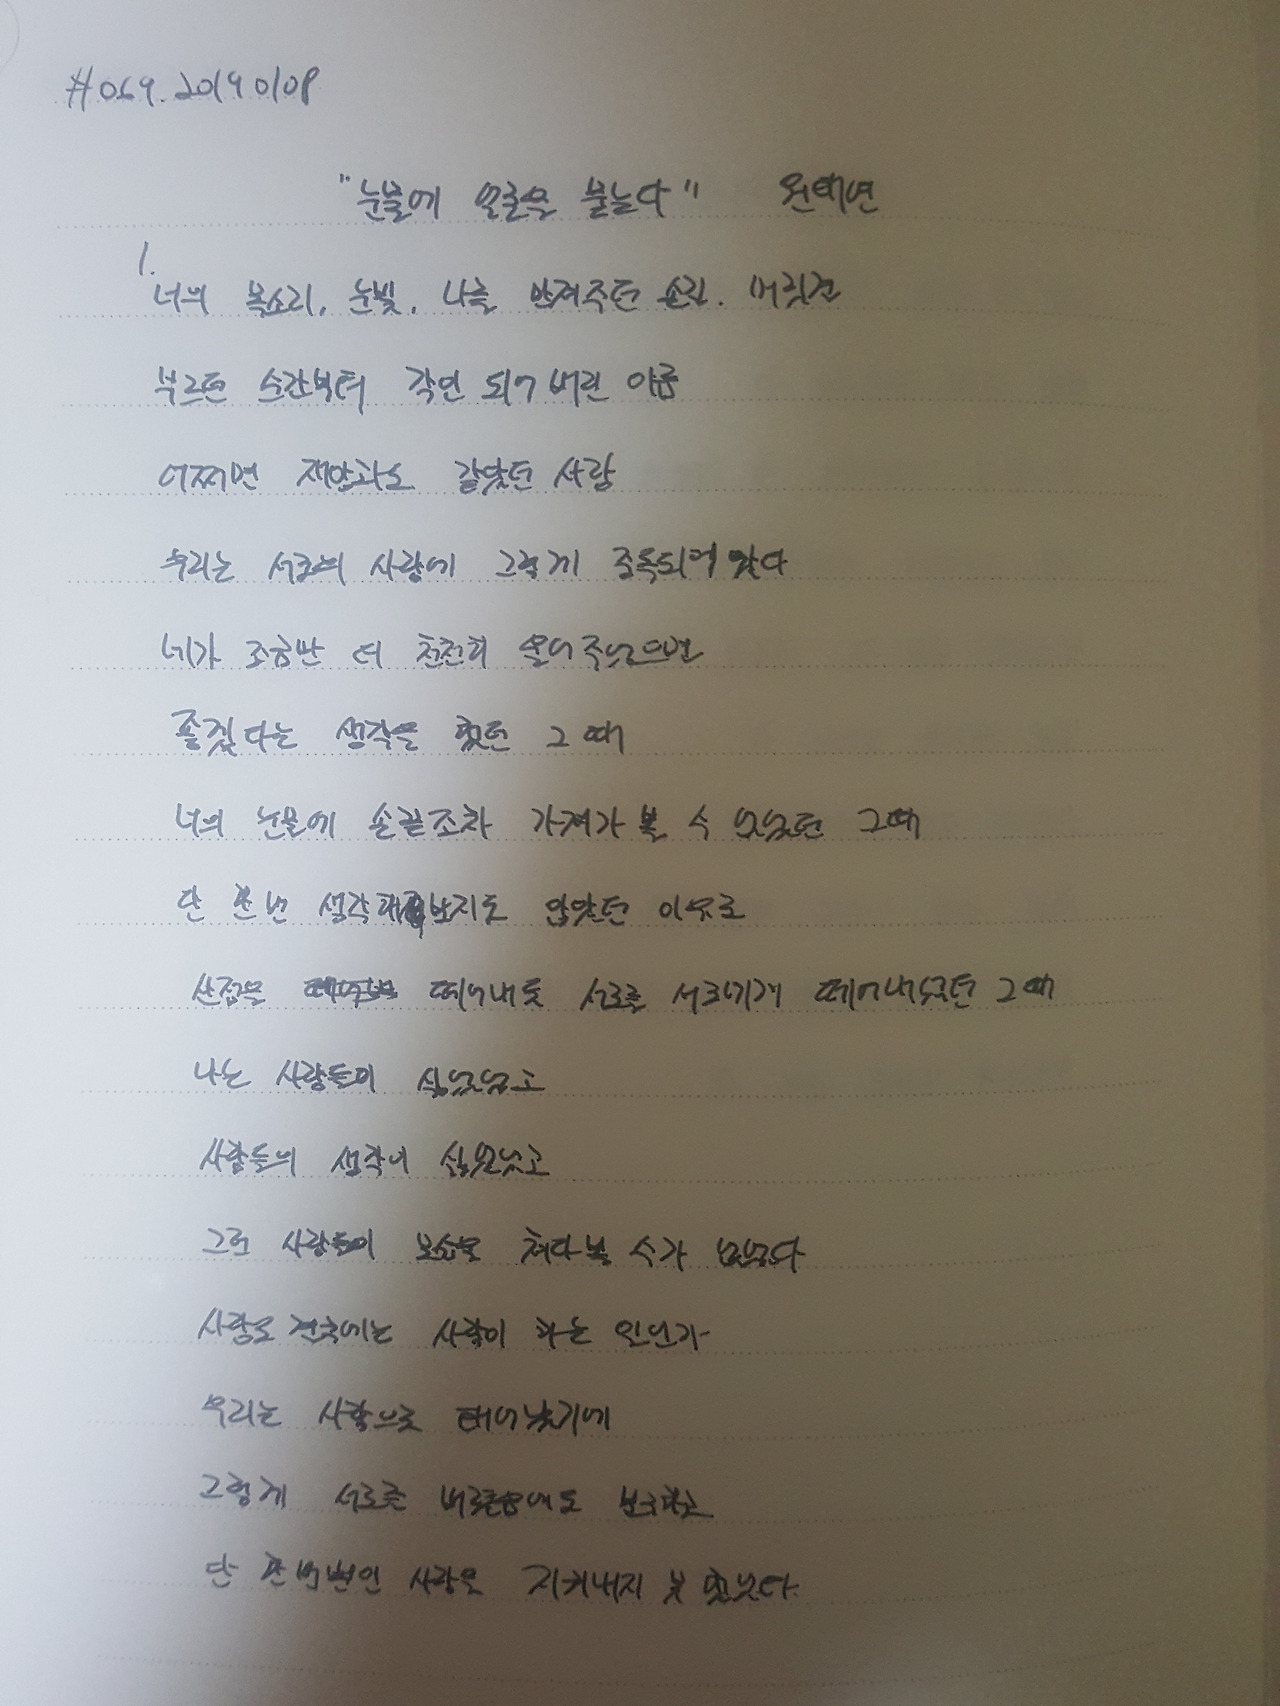 #069. 20190108
"눈물에 얼굴을 묻는다" 원태연
1.
너의 목소리, 눈빛, 나를 만져주던 손길, 머릿결
부르던 순간부터 각인 되어 버린 이름
어쩌면 재앙과도 같았던 사람
우리는 서로의 사랑에 그렇게 중독되어 갔다
네가 조금만 더 천천히 울어주었으면
좋겠다는 생각을 했던 그때
너의 눈물에 손끝조차 가져가 볼 수 없었던 그때
단 한번 생각해보지도 않았던 이유로
살점을 떼어내듯 서로를 서로에게 떼어내었던 그때
나는 사람들이 싫었었고
사람들의 생각이 싫었었고
그런 사람들의 모습을 쳐다볼 수가 없었다
사랑도 결국에는 사람이 하는 일인가
우리는 사람으로 태어났기에
그렇게 서로를 버려음에도 불구하고
단 한 번뿐인 사랑을 지켜내지 못 했었다.